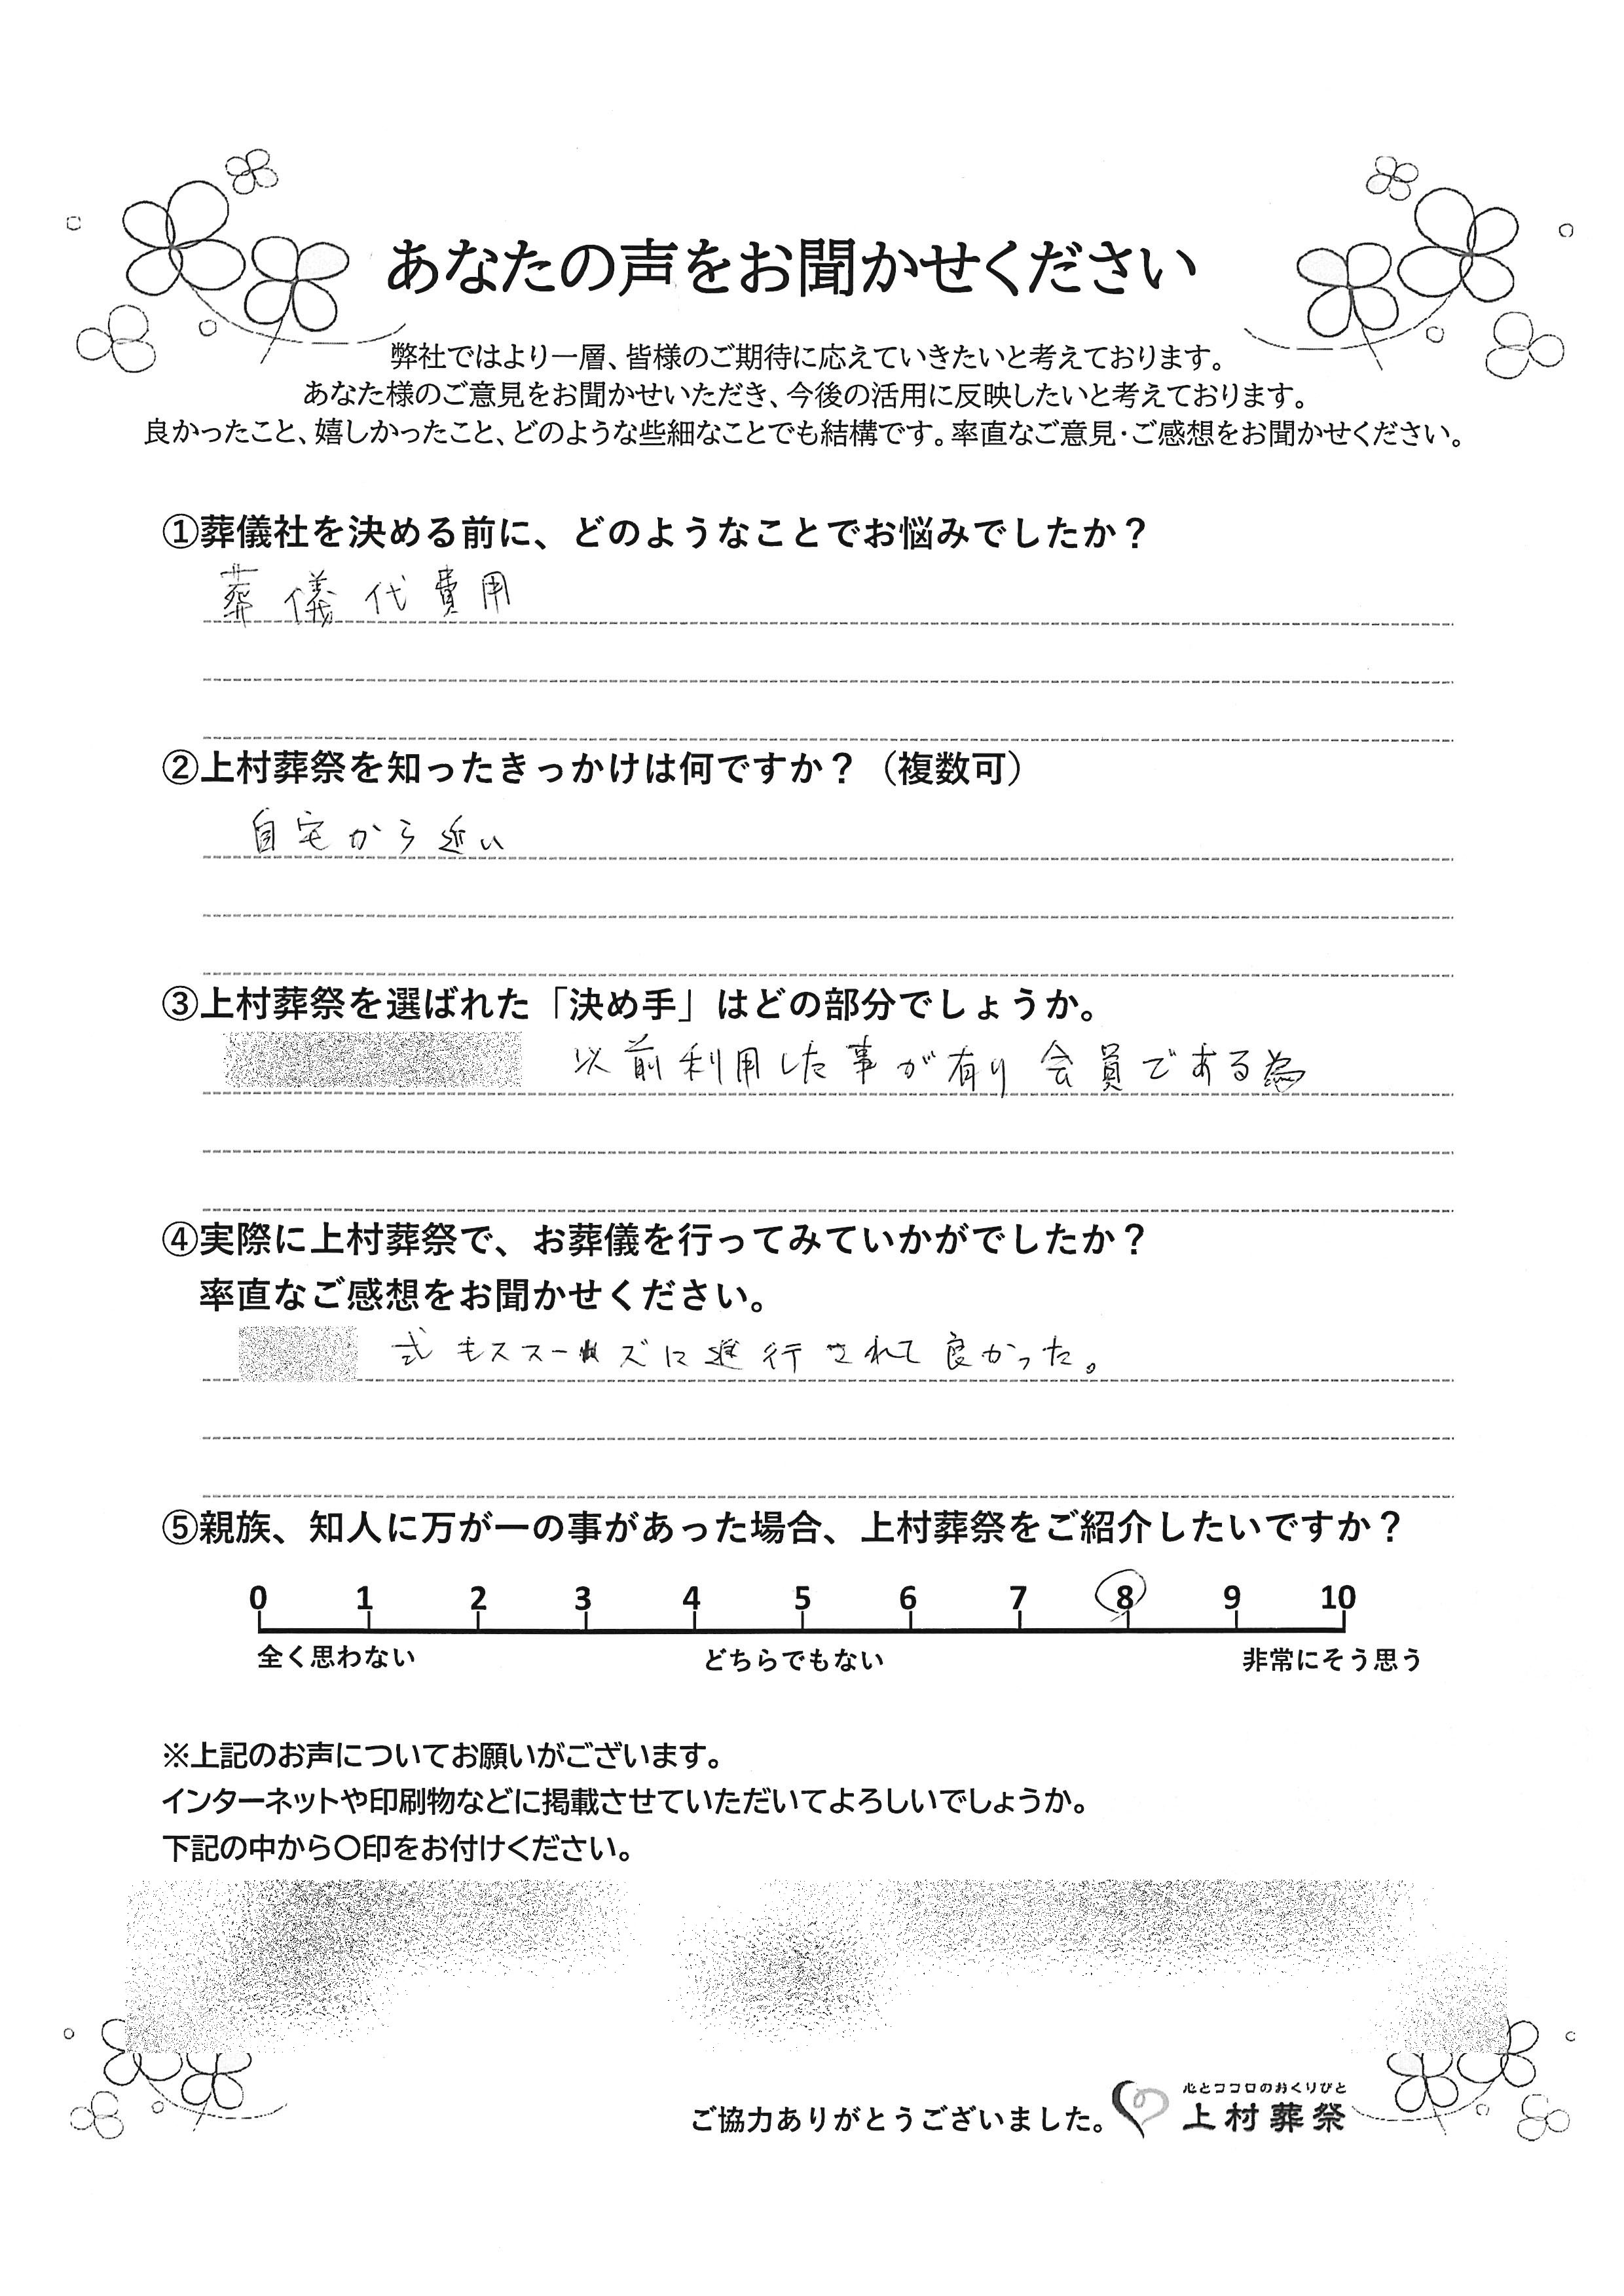 あなたの声をお聞かせください
弊社ではより一層、皆様のご期待に応えていきたいと考えております。
あなた様のご意見をお聞かせいただき、今後の活用に反映したいと考えております。
良かったこと、嬉しかったこと、どのような些細なことでも結構です。率直なご意見・ご感想をお聞かせください。
①葬儀社を決める前に、どのようなことでお悩みでしたか？
葬儀代費用
②上村葬祭を知ったきっかけは何ですか？（複数可）
自宅から近い
③上村葬祭を選ばれた「決め手」はどの部分でしょうか。
以前利用した事が有り会員である為
④実際に上村葬祭で、お葬儀を行ってみていかがでしたか？
率直なご感想をお聞かせください。
式もススーズに進行されて良かった。
⑤親族、知人に万が一の事があった場合、上村葬祭をご紹介したいですか？
0 1 2 3 4 5 6 7 8 9 10
全く思わない どちらでもない 非常にそう思う
※上記のお声についてお願いがございます。
インターネットや印刷物などに掲載させていただいてよろしいでしょうか。
下記の中から〇印をお付けください。
心とココロのおくりびと
ご協力ありがとうございました。 上村葬祭